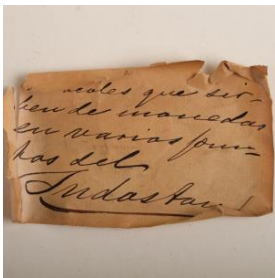 coles que sir-
ven de monedas
en varios pun-
tos del
Indostan!